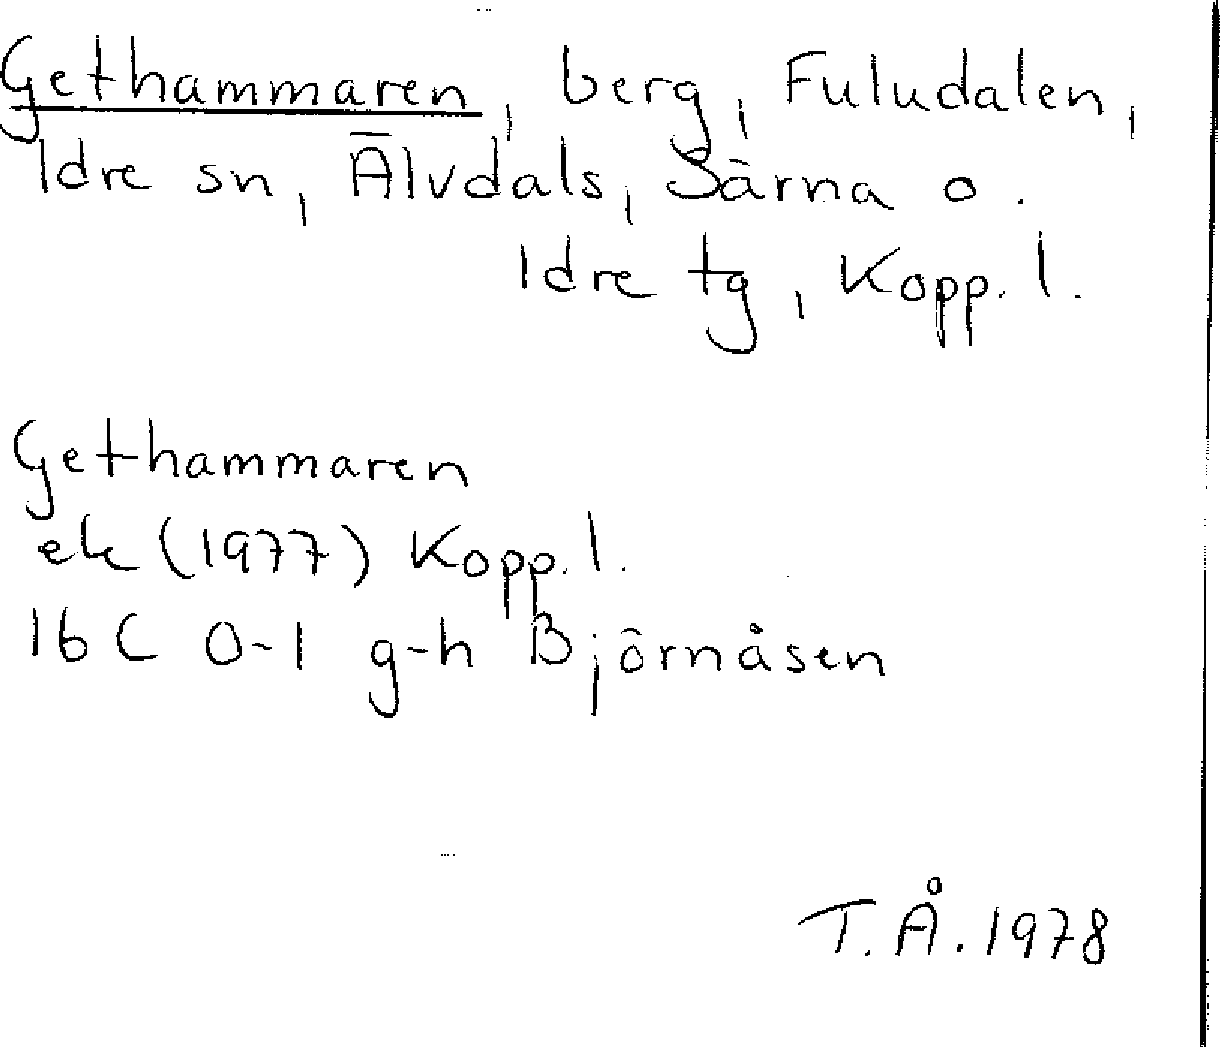 Gethammaren, berg, Fuludalen,
Idre sn, Älvdals, Särna o.
Idre tg, Kopp. l.
Gethammaren
ek (1977) Kopp. l.
16 C 0-1 g-h Björnåsen
T.Å. 1978